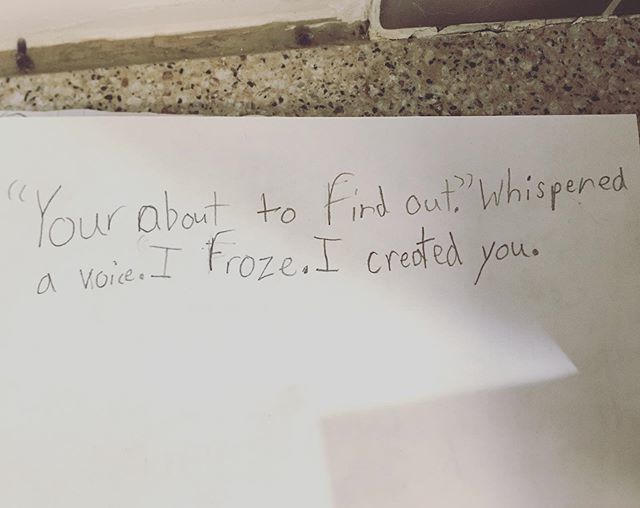 "Your about to Find out." Whispered
a voice. I Froze. I created you.